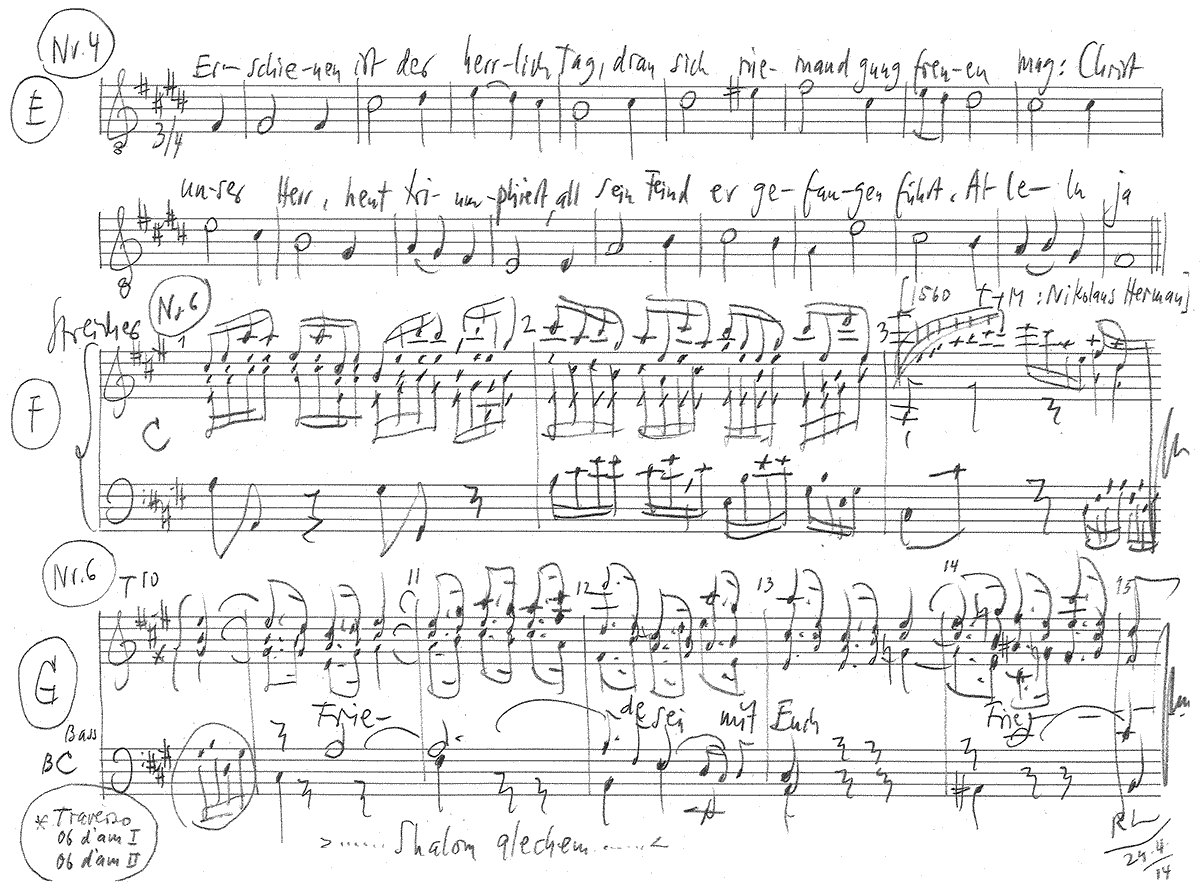 Nr. 4
Er-schie-nen ist der herr-lich Tag, dran sich nie-mand gnug freu-en mag: Christ
E
8
3/4
un-ser Herr, heut tri-um-phiert, all sein Feind er ge-fan-gen führt. Al-le-lu ja
8
[1560 T+M: Nikolaus Herman]
Streicher
Nr. 6
1 2 3
F
C
Nr. 6
Trio
11 12 13 14 15
*
G
Frie- de sei mit Euch Frie-
Bass
BC
* Traverso
Ob d'am I
Ob d'am II
>...... Shalom alechem ......<
RL
24.4.
14